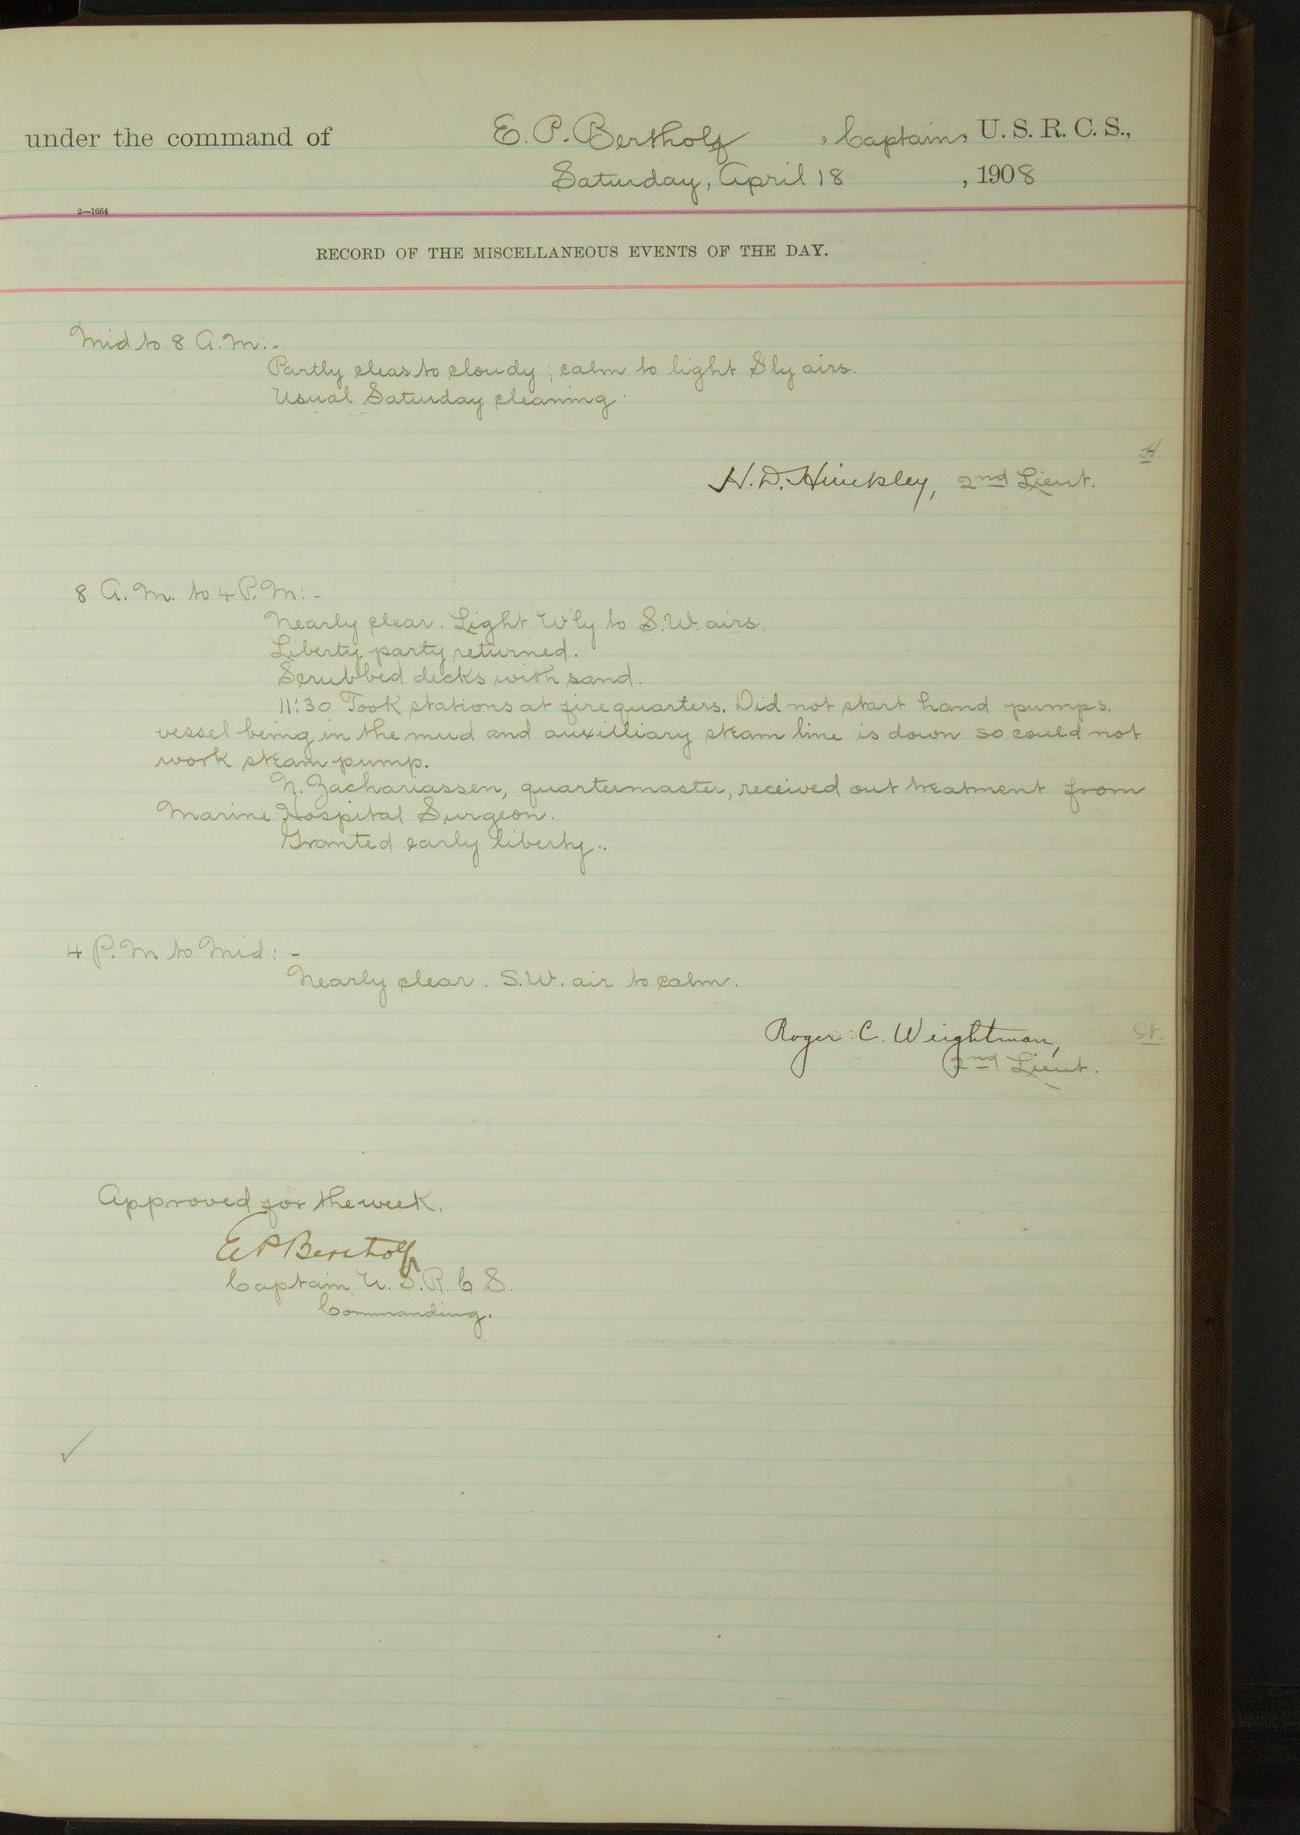 under the command of E. P. Bertholf, Captain, U. S. R. C. S.,
Saturday, April 18, 1908
2—1664
RECORD OF THE MISCELLANEOUS EVENTS OF THE DAY.
Mid to 8 A.M:-
Partly clear to cloudy; calm to light S'ly airs.
Usual Saturday cleaning.
H
H. D. Hinckley, 2nd Lieut.
8 A.M. to 4 P.M:-
Nearly clear. Light W'ly to S.W. airs.
Liberty party returned.
Scrubbed decks with sand.
11:30 Took stations at fire quarters. Did not start hand pumps,
vessel being in the mud and auxilliary steam line is down so could not
work steam pump.
N. Zachariassen, quartermaster, received out treatment from
Marine Hospital Surgeon.
Granted early liberty.
4 P.M to Mid:-
Nearly clear. S.W. air to calm.
Roger C. Weightman,
2nd Lieut.
Approved for the week.
E P Bertholf
Captain, U. S. R. C. S.
Commanding.